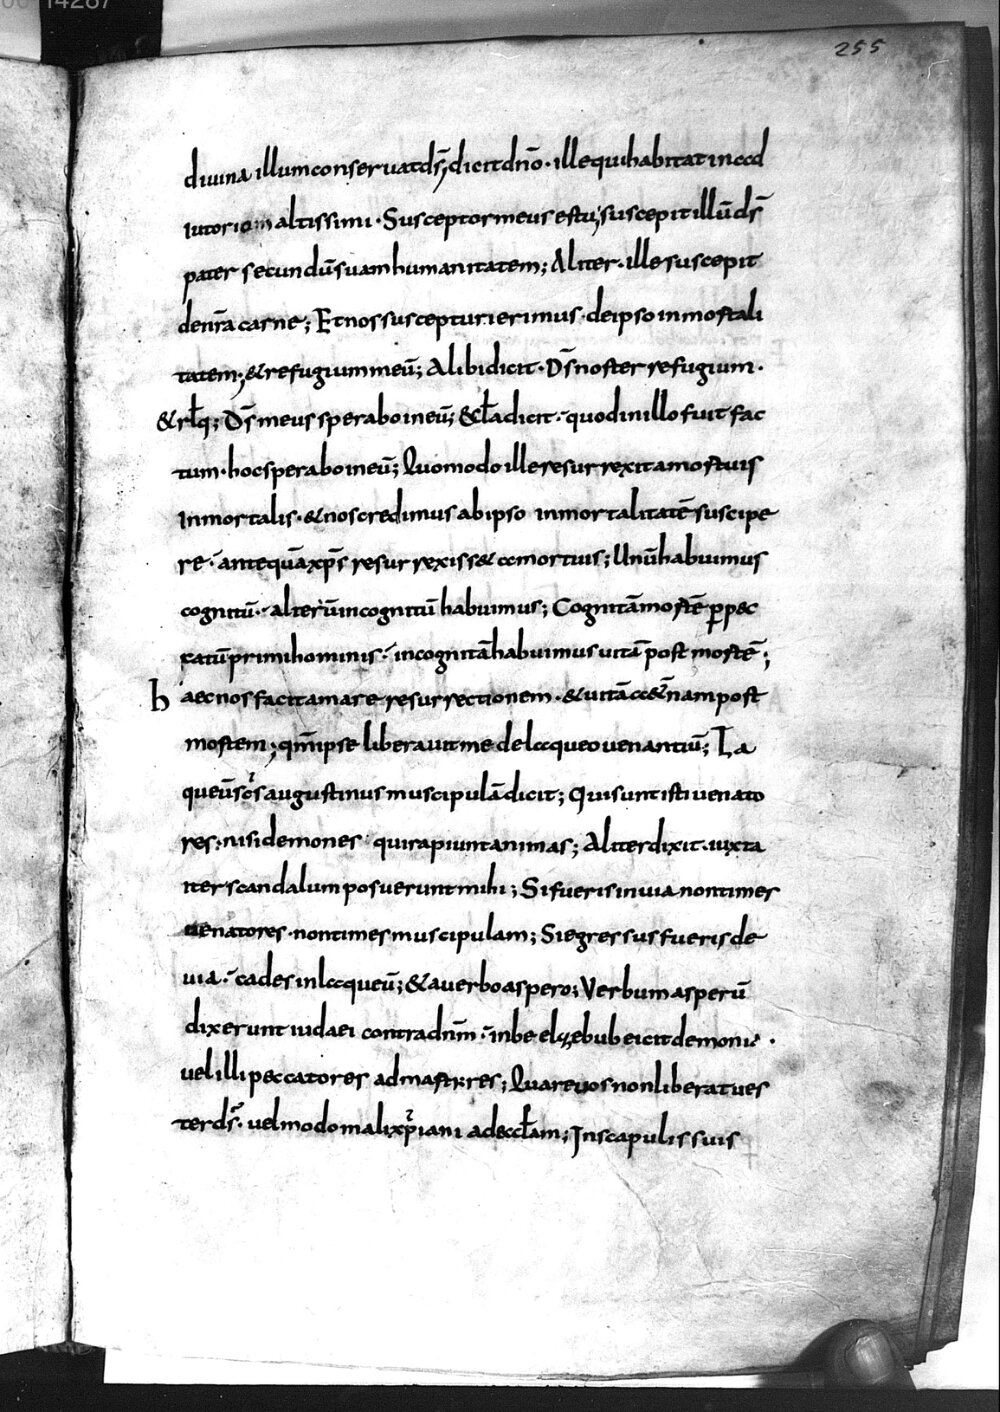 255
diuina illum conseruat d̄s; dicit dn̄o· ille qui habitat in ad
iutorium altissimi· Susceptor meus es tu; suscepit illū d̄s
pater secundū suam humanitatem; Aliter· ille suscepit
de nr̄a carne; Et nos suscepturi erimus· de ipso inmortali
tatem; & refugium meū; Alibi dicit· D̄s noster refugium·
& rƚq; D̄s meus sperabo in eū; & ecƚa dicit· quod in illo fuit fac
tum· hoc sperabo in eū; Quomodo ille resurrexit a mortuis
inmortalis· & nos credimus ab ipso inmortalitatē suscipe
re· antequā xp̄s resurrexiss& a mortuis; Unū habuimus
cognitū· alterū incognitū habuimus; Cognitā mortē p̱ pec
catū primi hominis· incognitā habuimus uitā post mortē;
haec nos facit amare resurrectionem· & uitā a&ernam post
mortem; qm̄ ipse liberauit me de laqueo uenantiū; La
queū sc̄s augustinus muscipulā dicit; Qui sunt isti uenato
res· nisi demones qui rapiunt animas; Aliter dixit· iuxta
iter scandalum posuerunt mihi; Si fueris in uia non times
uenatores· non times muscipulam; Si egressus fueris de
uia· cades in laqueū; & a uerbo aspero; Verbum asperū
dixerunt iudaei contra dn̄m· in beelzebub eicit demonia·
uel illi peccatores ad martires; Quare uos non liberat ues
ter d̄s· uel modo mali xp̄iani ad eccƚam; In scapulis suis